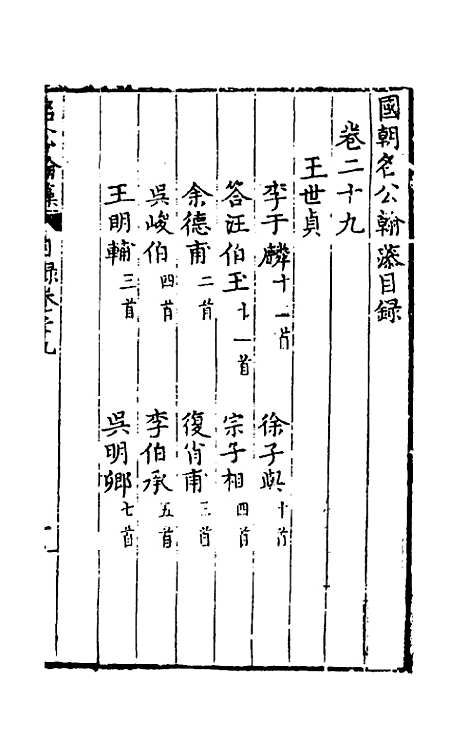 國朝名公翰藻目録
卷二十九
王世貞
李于麟十一首 徐子與十首
答汪伯玉十一首 宗子相四首
余德甫二首 復肖甫三首
吳峻伯四首 李伯承五首
王明輔三首 吳明卿七首
名公翰藻 目録卷二十九